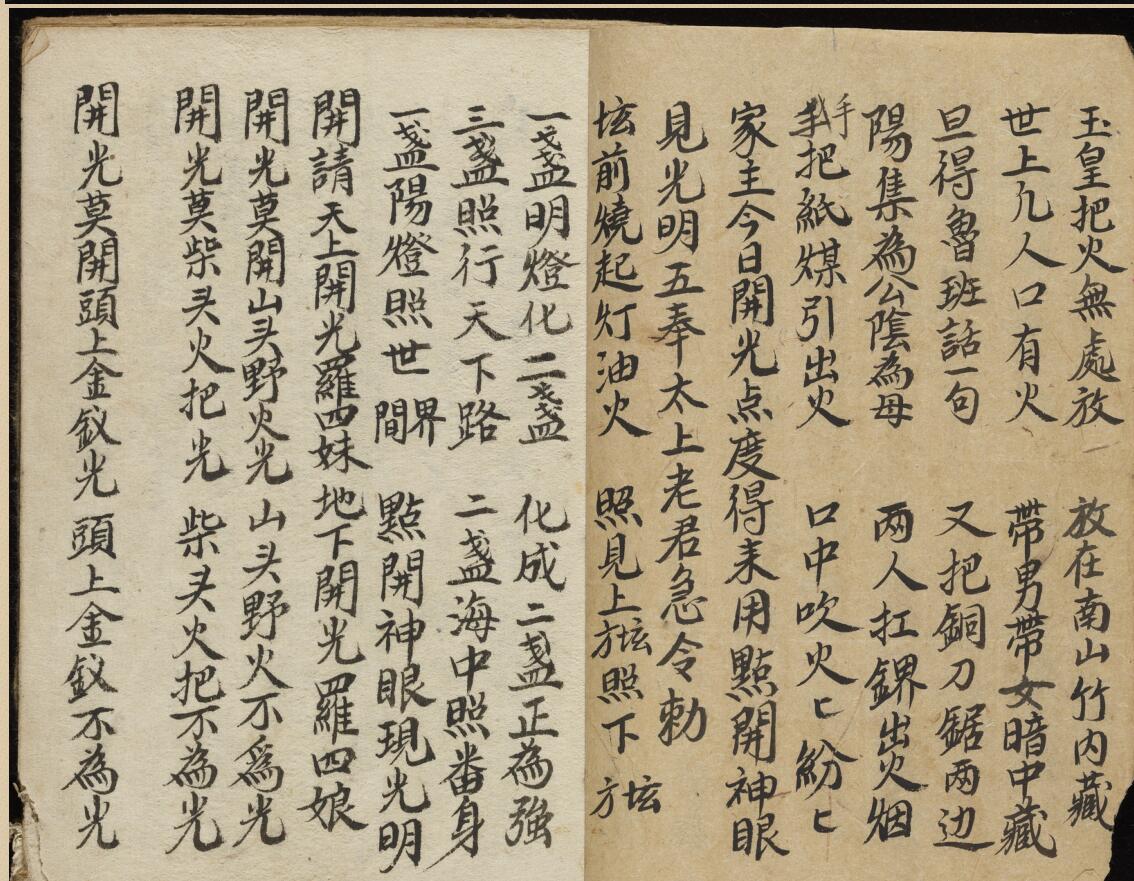 玉皇把火無處放　放在南山竹内藏
世上凡人口有火　帶男帶女暗中藏
旦得魯班話一句　又把銅刀鋸两边
陽集為公陰為母　两人扛鎅出火烟
手把紙煤引出火　口中吹火匕紛匕
家主今日開光点度得来用點開神眼
見光明五奉太上老君急令勅
坛前燒起灯油火　照見上方坛照下方坛
一盞明燈化二盞　化成二盞正為強
三盞照行天下路　二盞海中照番身
一盞陽燈照世間界　點開神眼現光明
開請天上開光羅四妹　地下開光羅四娘
開光莫開山头野火光　山头野火不爲光
開光莫柴头火把光　柴头火把不為光
開光莫開頭上金釵光　頭上金釵不為光